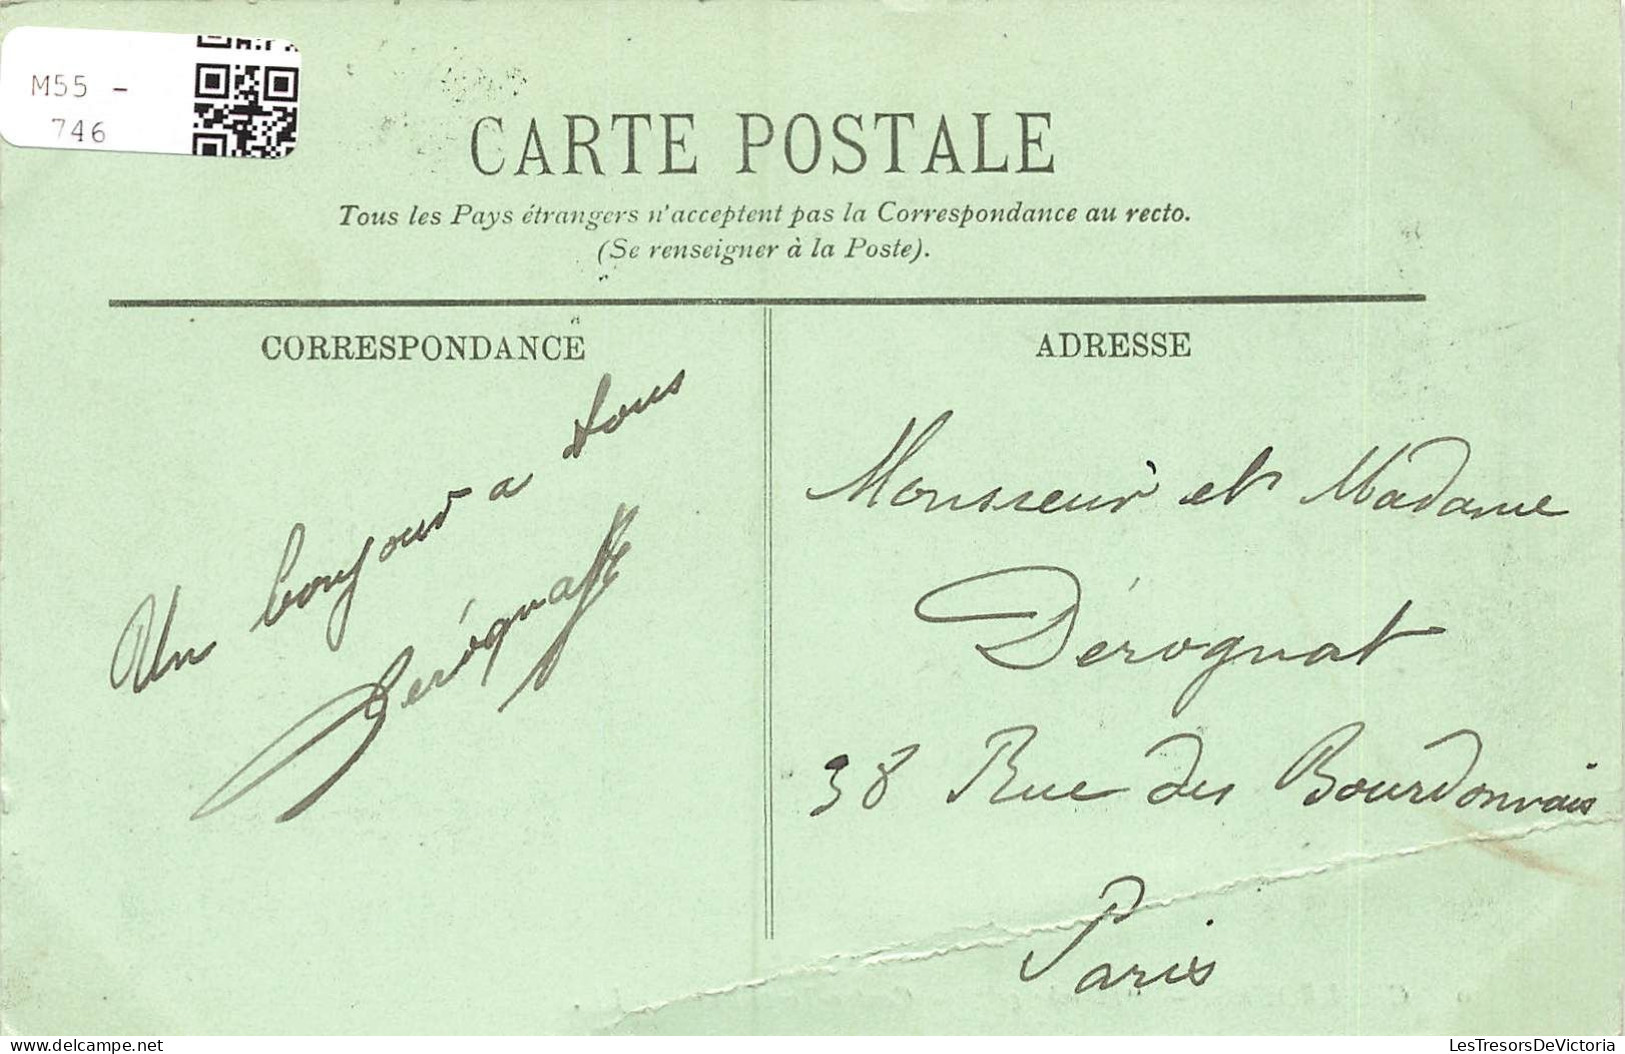 M55 -
746
CARTE POSTALE
Tous les Pays étrangers n'acceptent pas la Correspondance au recto.
(Se renseigner à la Poste).
CORRESPONDANCE
ADRESSE
Un bonjour a tous
Derognat
Monsieur et Madame
Dérognat
38 Rue des Bourdonnais
Paris
delcampe.net
LesTresorsDeVictoria